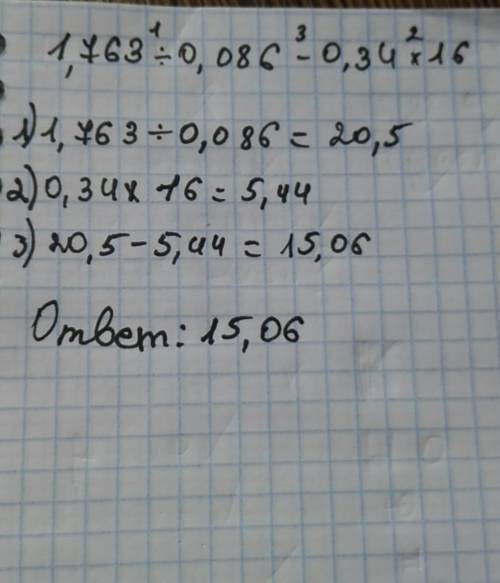 1,763 ÷ 0,086 - 0,34 × 16
1) 1,763 ÷ 0,086 = 20,5
2) 0,34 × 16 = 5,44
3) 20,5 - 5,44 = 15,06
Ответ: 15,06